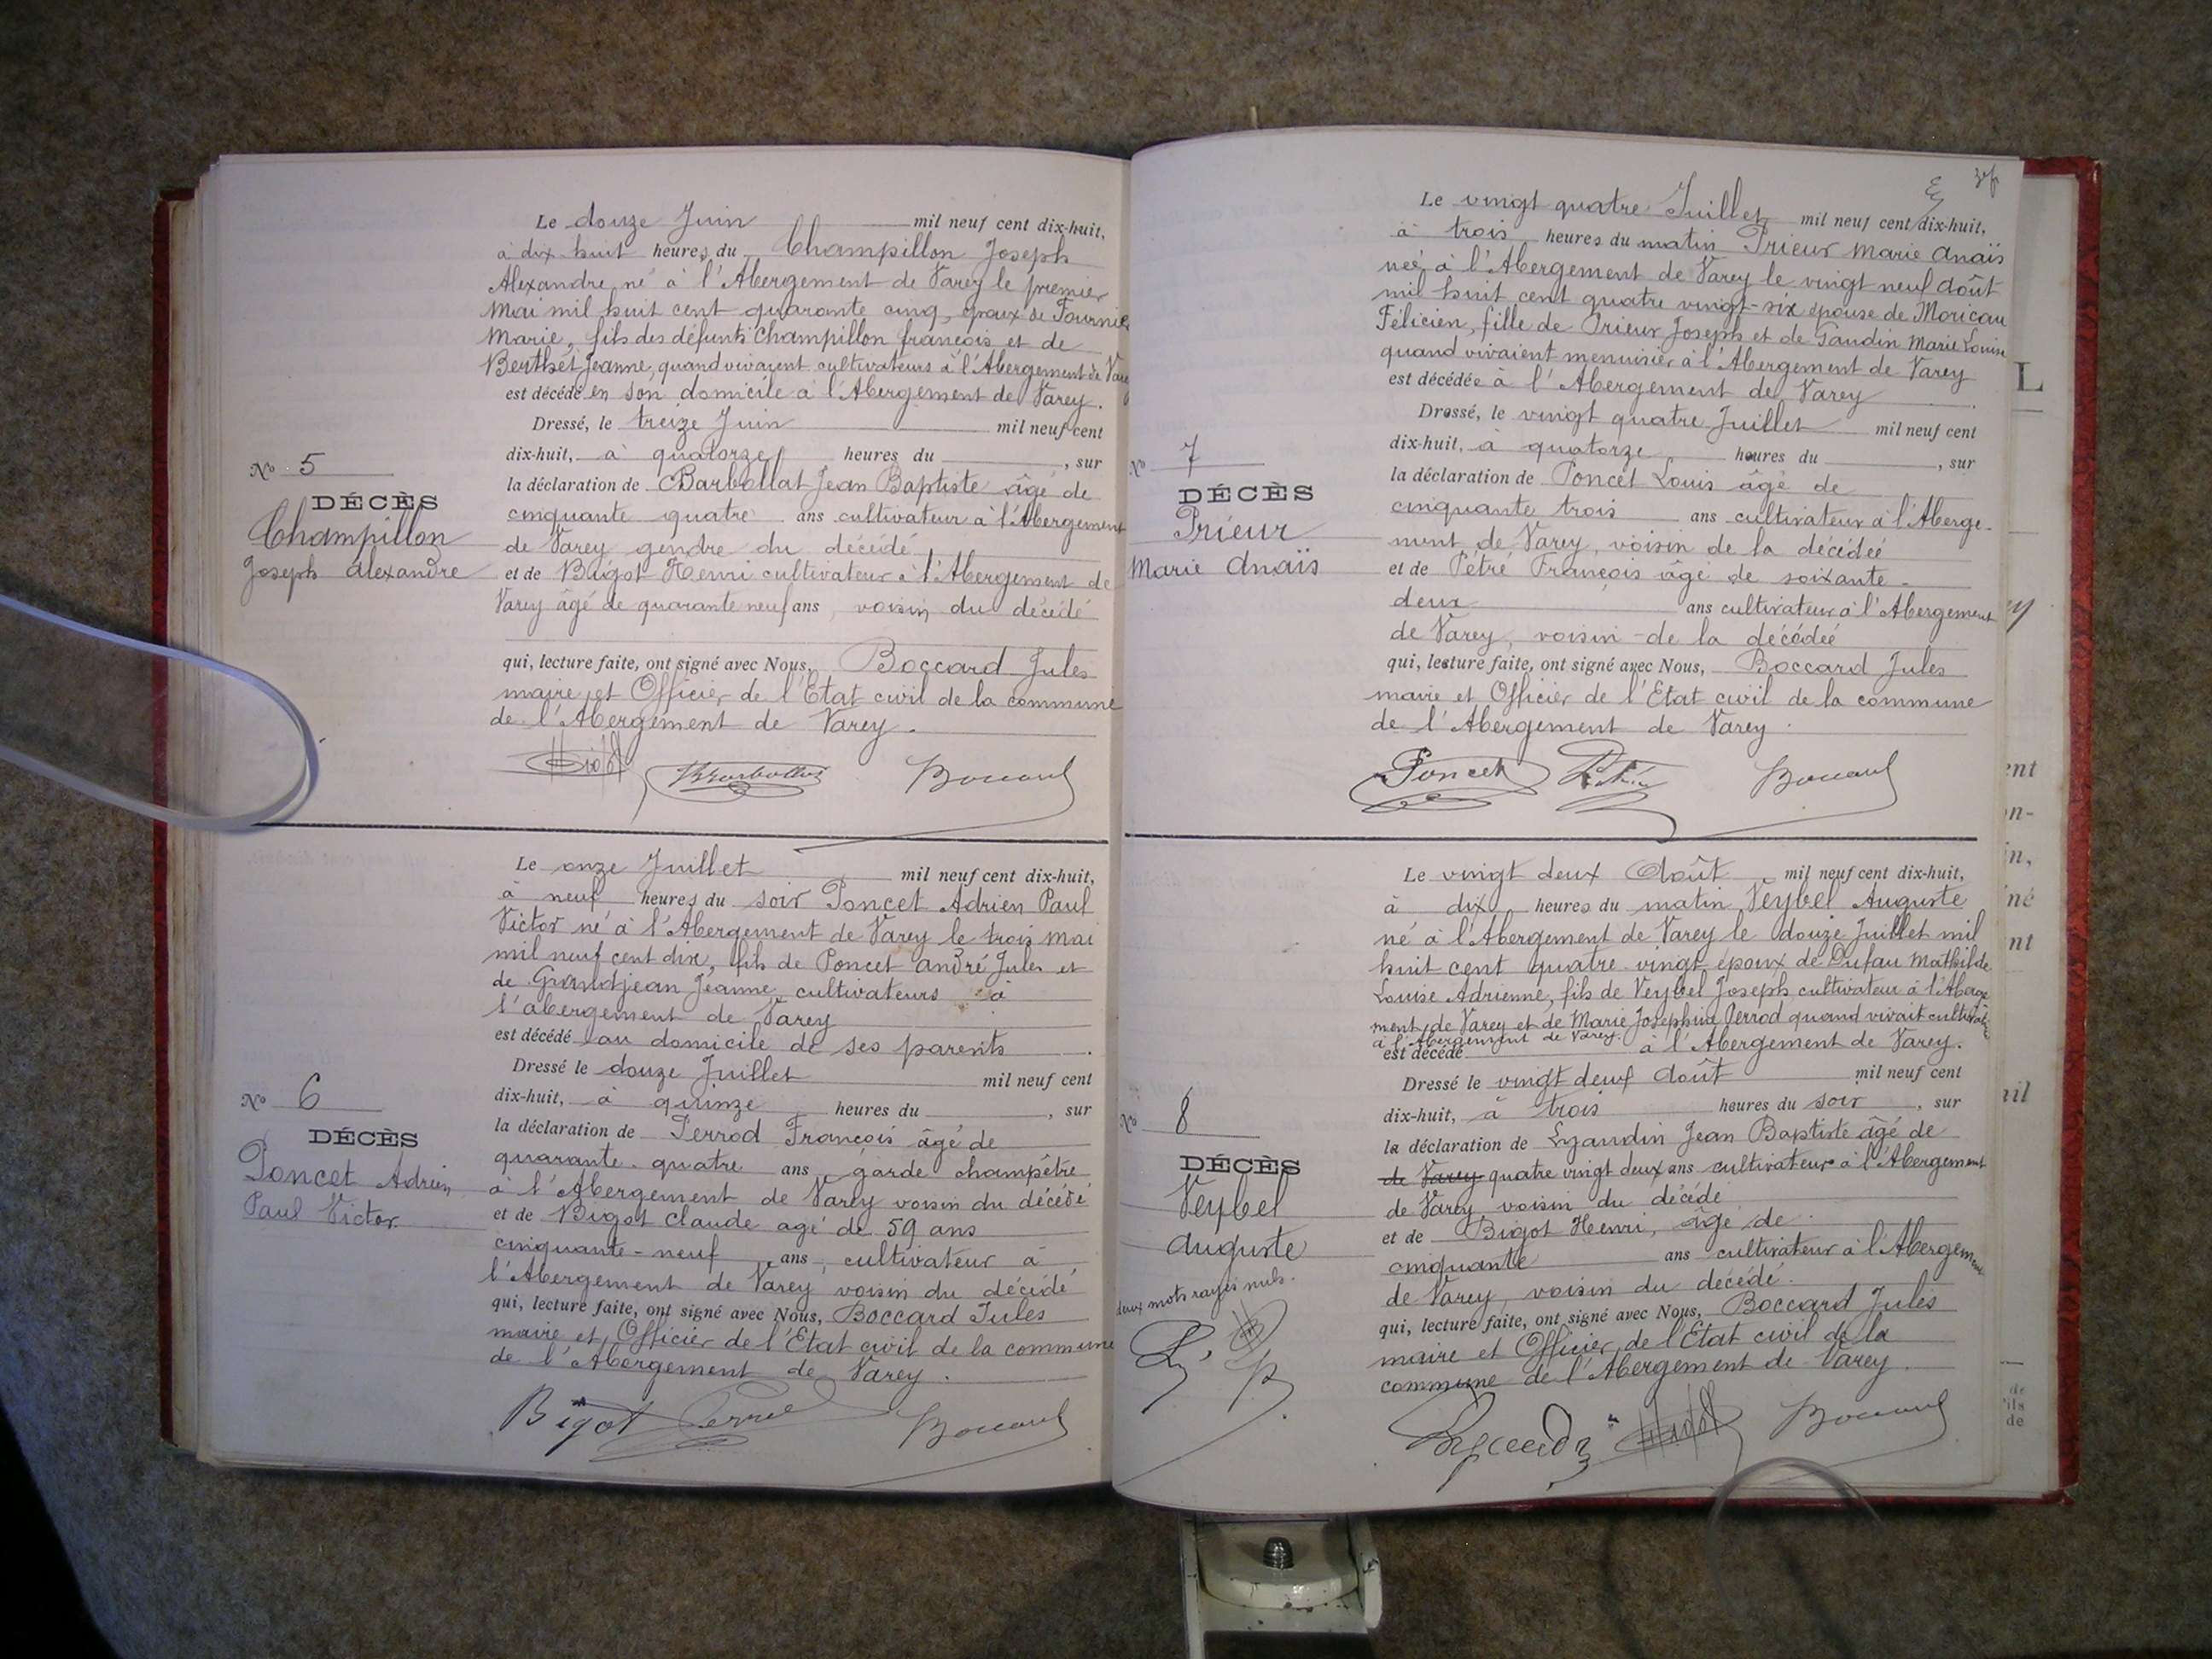 Le douze Juin mil neuf cent dix-huit,
à dix huit heures du Champillon Joseph
Alexandre né à l'Abergement de Varey le premier
Mai mil huit cent quarante cinq, époux de Fournier
Marie, fils des défunts Champillon françois et de
Berthet Jeanne, quand vivaient cultivateurs à l'Abergement de Varey
est décédé en son domicile à l'Abergement de Varey.
Dressé, le treize Juin mil neuf cent
dix-huit, à quatorze heures du , sur
la déclaration de Barbollat Jean Baptiste âgé de
cinquante quatre ans cultivateur à l'Abergement
de Varey gendre du décédé
et de Bigot Henri cultivateur à l'Abergement de
Varey âgé de quarante neuf ans, voisin du décédé
qui, lecture faite, ont signé avec Nous, Boccard Jules
maire et Officier de l'Etat civil de la commune
de l'Abergement de Varey.
Bigot Barbollat Boccard
No 5
DÉCÈS
Champillon
Joseph Alexandre
Le onze Juillet mil neuf cent dix-huit,
à neuf heures du soir Poncet Adrien Paul
Victor né à l'Abergement de Varey le trois Mai
mil neuf cent dix, fils de Poncet André Jules et
de Grandjean Jeanne cultivateurs à
l'abergement de Varey
est décédé au domicile de ses parents .
Dressé le douze Juillet mil neuf cent
dix-huit, à quinze heures du , sur
la déclaration de Perrod François âgé de
quarante-quatre ans garde champêtre
à l'Abergement de Varey voisin du décédé
et de Bigot Claude agé de 59 ans
cinquante-neuf ans, cultivateur à
l'Abergement de Varey voisin du décédé
qui, lecture faite, ont signé avec Nous, Boccard Jules
maire et Officier de l'Etat civil de la commune
de l'Abergement de Varey.
Bigot Perrod Boccard
No 6
DÉCÈS
Poncet Adrien
Paul Victor
Le vingt quatre Juillet mil neuf cent dix-huit,
à trois heures du matin Prieur Marie Anaïs
neé à l'Abergement de Varey le vingt neuf Août
mil huit cent quatre vingt-six épouse de Moricau
Félicien, fille de Prieur Joseph et de Gaudin Marie Louise
quand vivaient menuisier à l'Abergement de Varey
est décédée à l'Abergement de Varey .
Dressé, le vingt quatre Juillet mil neuf cent
dix-huit, à quatorze heures du , sur
la déclaration de Poncet Louis âgé de
cinquante trois ans cultivateur à l'Aberge-
ment de Varey, voisin de la décédeé
et de Pétré François âgé de soixante-
deux ans cultivateur à l'Abergement
de Varey, voisin de la décédeé
qui, lecture faite, ont signé avec Nous, Boccard Jules
maire et Officier de l'Etat civil de la commune
de l'Abergement de Varey.
Poncet Boccard
No 7
DÉCÈS
Prieur
Marie Anaïs
Le vingt deux Août mil neuf cent dix-huit,
à dix heures du matin Veybel Auguste
né à l'Abergement de Varey le douze Juillet mil
huit cent quatre vingt époux de Dufau Mathilde
Louise Adrienne, fils de Veybel Joseph cultivateur à l'Aberge
ment de Varey et de Marie Josephine Perrod quand vivait cultivatrice
à l'Abergement de Varey.
est décédé à l'Abergement de Varey.
Dressé le vingt deux Août mil neuf cent
dix-huit, à trois heures du soir , sur
la déclaration de Lyaudin Jean Baptiste âgé de
de Varey quatre vingt deux ans cultivateur à l'Abergement
de Varey voisin du décédé
et de Bigot Henri, âgé de
cinquante ans cultivateur à l'Abergement
de Varey, voisin du décédé.
qui, lecture faite, ont signé avec Nous, Boccard Jules
maire et Officier de l'Etat civil de la
commune de l'Abergement de Varey.
Boccard
No 8
DÉCÈS
Veybel
Auguste
deux mots rayés nuls.